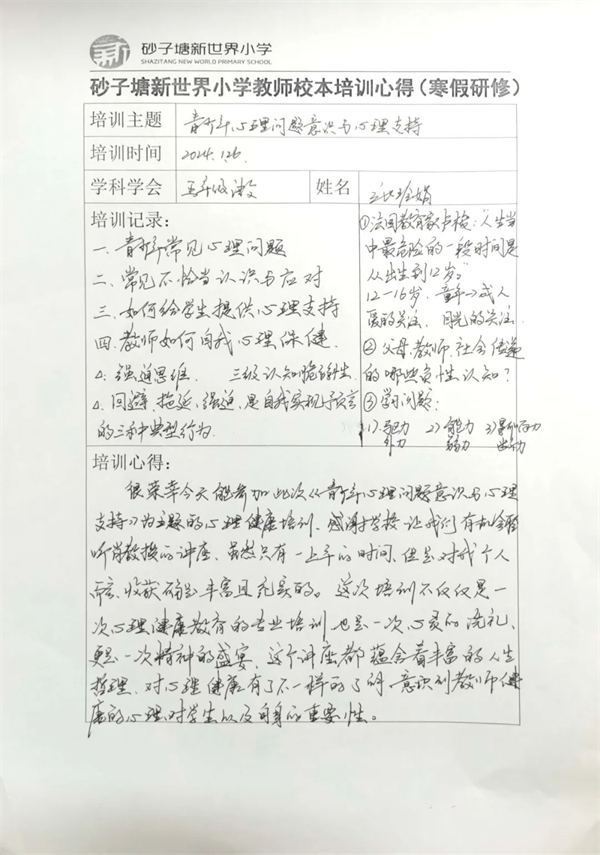 砂子塘新世界小学
SHAZITANG NEW WORLD PRIMARY SCHOOL
砂子塘新世界小学教师校本培训心得（寒假研修）
培训主题 青少年心理问题意识与心理支持
培训时间 2024.1.26.
学科学会 五年级 姓名
培训记录：
一、青少年常见心理问题
二、常见不恰当认识与应对
三、如何给学生提供心理支持
四、教师如何自我心理保健.
4. 强迫思维. 三级认知
4. 回避、拖延、强迫，是自我实现预言
的三种典型行为.
①法国教育家卢梭：“人生当
中最危险的一段时间是
从出生到12岁。”
12-16岁. 童年→成人
医的关注、目光的关注.
②父母、教师、社会传递
的哪些负性认知？
③学习问题：
1). 动力 2) 能力 3)
外力
培训心得：
很荣幸今天能参加此次《青少年心理问题意识与心理
支持》为主题的心理健康培训，感谢学校让我们有机会聆
听肖教授的讲座。虽然只有一上午的时间，但是对我个人
而言，收获确是丰富且充实的。这次培训不仅仅是一
次心理健康教育的专业培训，也是一次心灵的洗礼，
更是一次精神的盛宴，这个讲座都蕴含着丰富的人生
哲理，对心理健康有了不一样的了解，意识到教师健
康的心理对学生以及自身的重要性。